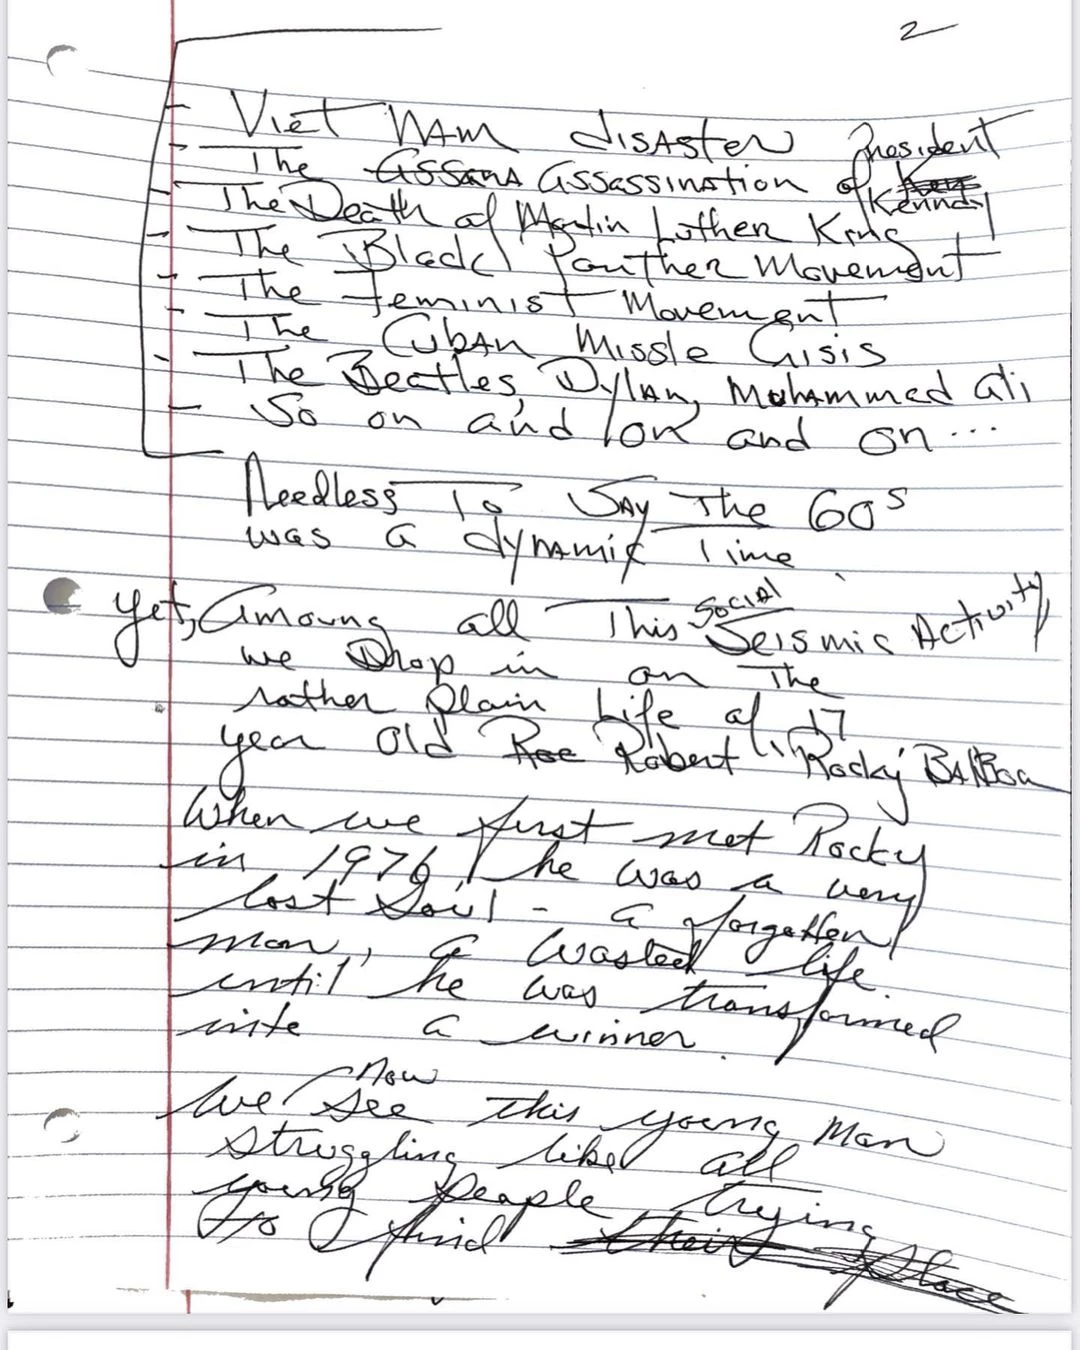 2
- Viet NAM disASter
- The Assana Assassination of President Ken Kenndy
- The Death of Martin Luther King
- The Black Panther Movement
- The Feminist Movement
- The Cuban Missle Crisis
- The Beatles, Dylan, Muhammed Ali
- So on and on and on...
Needless To SAy The 60s
was a dynamic Time
Yet, Amoung all This Social Seismic Activity,
we Drop in on The
rather plain Life of 17
year old Roc Robert "Rocky" BALBoa
When we first met Rocky
in 1976, he was a very
lost soul - a forgotten
man, a wasted life
until he was transformed
into a winner.
We now see this young man
struggling like all
young people trying
to find their place